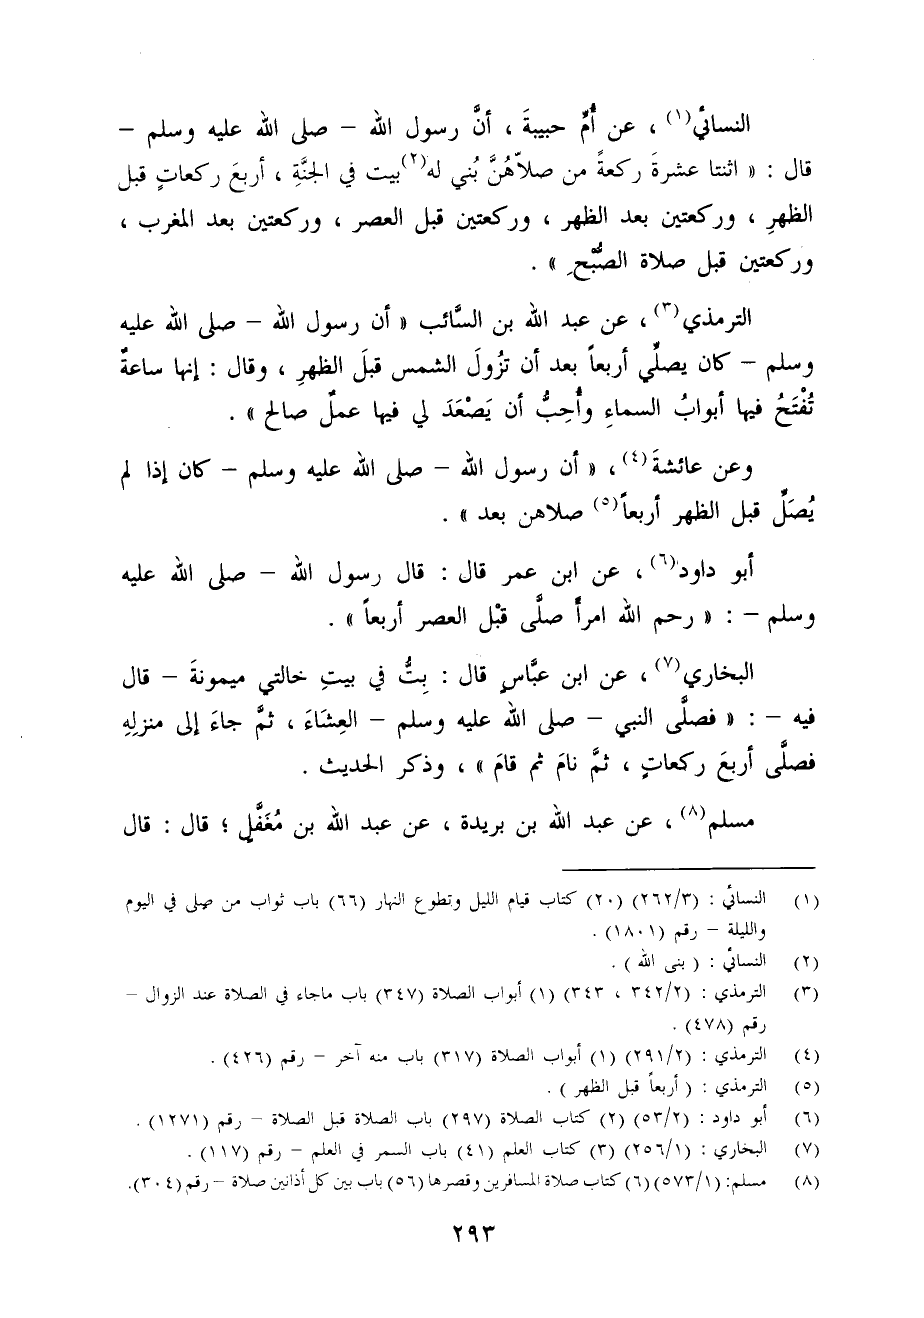 النسائي(١) ، عن أُمِّ حبيبةَ ، أنَّ رسول الله – صلى الله عليه وسلم –
قال : « اثنتا عشرةَ ركعةً من صلاّهُنَّ بُني له(٢) بيت في الجنَّةِ ، أربعَ ركعاتٍ قبل
الظهرِ ، وركعتين بعد الظهر ، وركعتين قبل العصر ، وركعتين بعد المغرب ،
وركعتين قبل صلاة الصُّبْحِ » .
الترمذي(٣) ، عن عبد الله بن السَّائب « أن رسول الله – صلى الله عليه
وسلم – كان يصلِّي أربعاً بعد أن تزُولَ الشمس قبلَ الظهرِ ، وقال : إنها ساعةٌ
تُفْتَحُ فيها أبوابُ السماءِ وأُحِبُّ أن يَصْعَدَ لي فيها عملٌ صالح » .
وعن عائشةَ(٤) ، « أن رسول الله – صلى الله عليه وسلم – كان إذا لم
يُصَلِّ قبل الظهر أربعاً(٥) صلاهن بعد » .
أبو داود(٦) ، عن ابن عمر قال : قال رسول الله – صلى الله عليه
وسلم – : « رحم الله امرأً صلَّى قبْل العصر أربعاً » .
البخاري(٧) ، عن ابن عبَّاسٍ قال : بِتُّ في بيتِ خالتي ميمونةَ – قال
فيه – : « فصلَّى النبي – صلى الله عليه وسلم – العِشَاءَ ، ثمَّ جاءَ إلى منزلِهِ
فصلَّى أربعَ ركعاتٍ ، ثمَّ نامَ ثم قامَ » ، وذكر الحديث .
مسلم(٨) ، عن عبد الله بن بريدة ، عن عبد الله بن مُغَفَّلٍ ؛ قال : قال
(١) النسائي : (٢٦٢/٣) (٢٠) كتاب قيام الليل وتطوع النهار (٦٦) باب ثواب من صلى في اليوم
والليلة – رقم (١٨٠١) .
(٢) النسائي : ( بنى الله ) .
(٣) الترمذي : (٣٤٢/٢ ، ٣٤٣) (١) أبواب الصلاة (٣٤٧) باب ماجاء في الصلاة عند الزوال –
رقم (٤٧٨) .
(٤) الترمذي : (٢٩١/٢) (١) أبواب الصلاة (٣١٧) باب منه آخر – رقم (٤٢٦) .
(٥) الترمذي : ( أربعاً قبل الظهر ) .
(٦) أبو داود : (٥٣/٢) (٢) كتاب الصلاة (٢٩٧) باب الصلاة قبل الصلاة – رقم (١٢٧١) .
(٧) البخاري : (٢٥٦/١) (٣) كتاب العلم (٤١) باب السمر في العلم – رقم (١١٧) .
(٨) مسلم: (٥٧٣/١) (٦) كتاب صلاة المسافرين وقصرها (٥٦) باب بين كل أذانين صلاة – رقم (٣٠٤).
٢٩٣